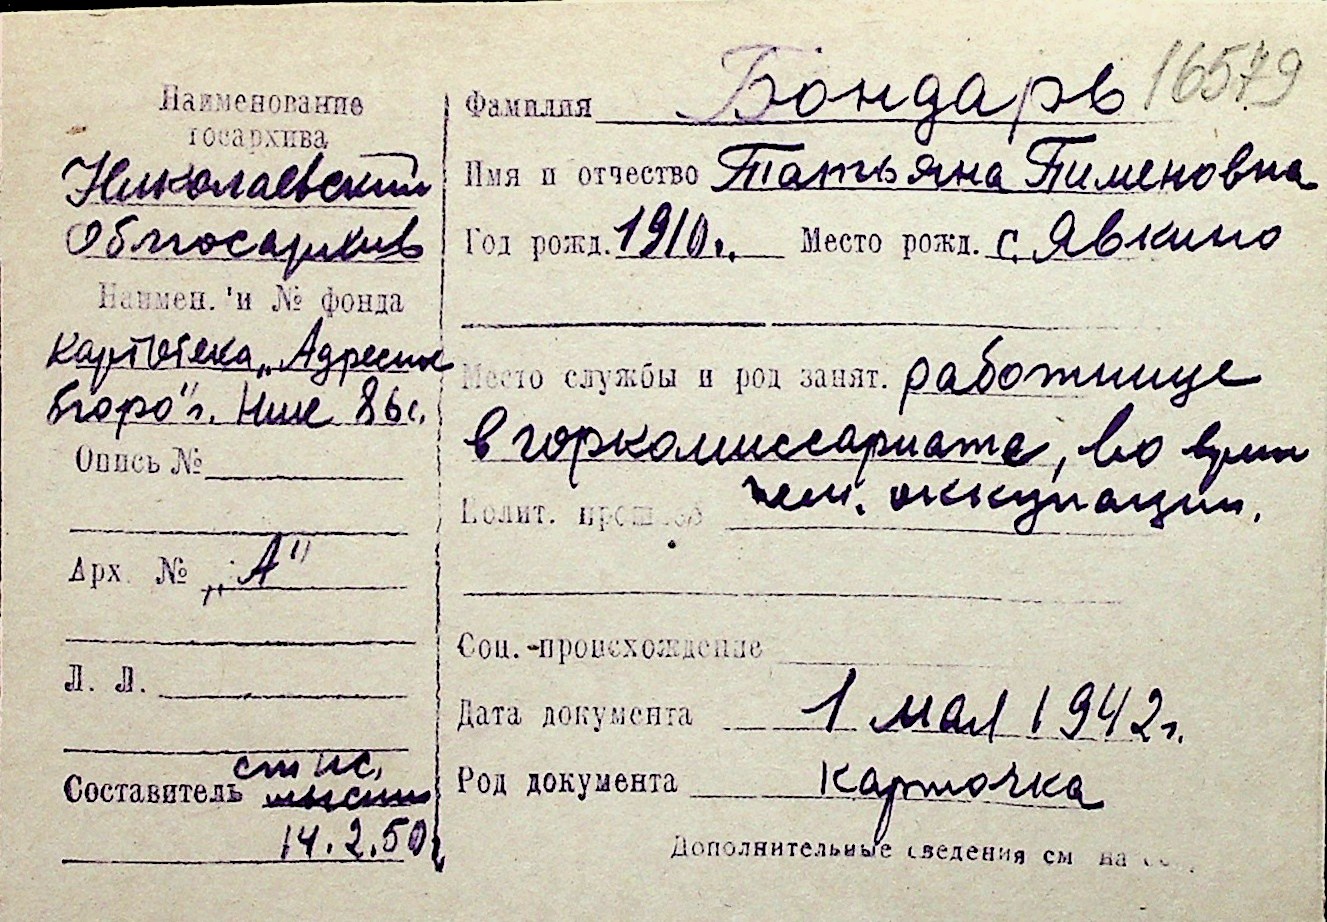 Наименование
госархива
Николаевский
Облгосархив
Наимен. и № фонда
картотека „Адресн
бюро" г. Ник
Опись №
Арх. № „А"
Л. Л.
Составитель
14.2.50г.
16579
Фамилия Бондарь
Имя и отчество Татьяна Пименовна
Год рожд. 1910г. Место рожд. с. Явкино
Место службы и род занят. работнице
в горкомиссариате, во врем
Полит. прошлое нем. оккупации.
Соц.-происхождение
Дата документа 1 мая 1942г.
Род документа карточка
Дополнительные сведения см на